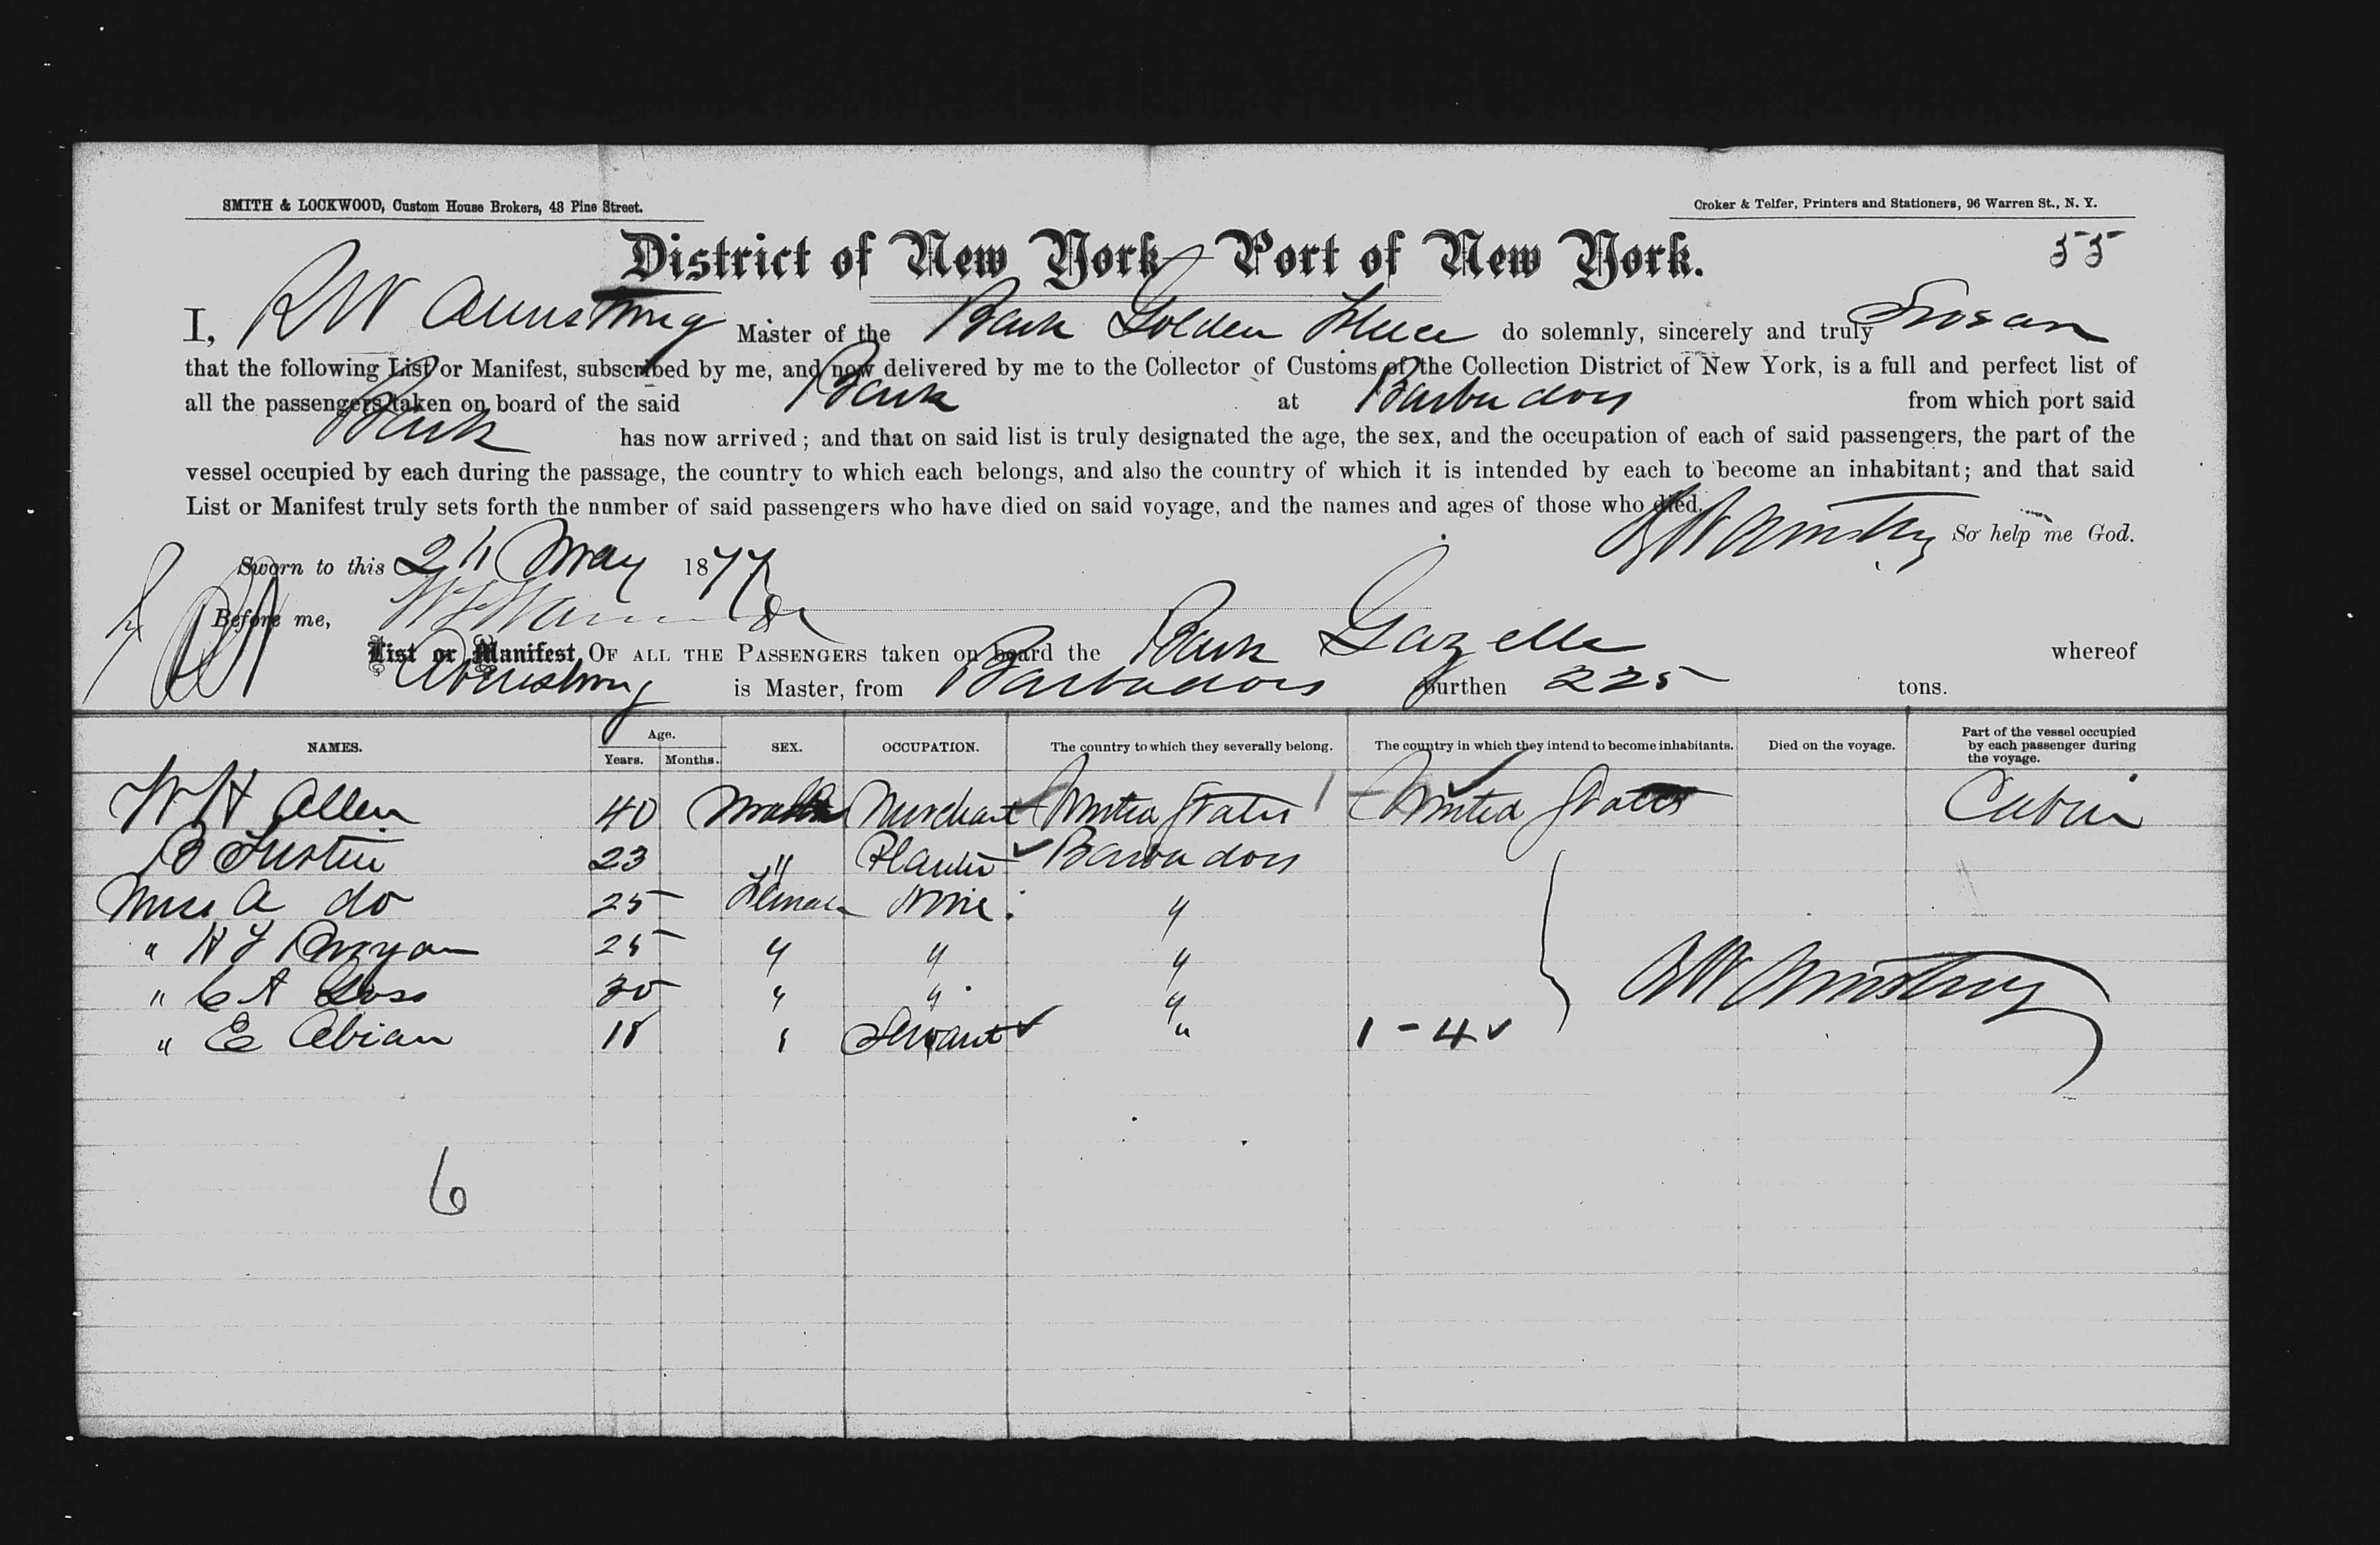 SMITH & LOCKWOOD, Custom House Brokers, 48 Pine Street.
Croker & Telfer, Printers and Stationers, 96 Warren St., N. Y.
55
District of New York Port of New York.
I, R W Armstrong Master of the Bark Golden Fleece do solemnly, sincerely and truly Swear
that the following List or Manifest, subscribed by me, and now delivered by me to the Collector of Customs of the Collection District of New York, is a full and perfect list of
all the passengers taken on board of the said Bark at Barbadoes from which port said
Bark has now arrived; and that on said list is truly designated the age, the sex, and the occupation of each of said passengers, the part of the
vessel occupied by each during the passage, the country to which each belongs, and also the country of which it is intended by each to become an inhabitant; and that said
List or Manifest truly sets forth the number of said passengers who have died on said voyage, and the names and ages of those who died.
R W Armstrong So help me God.
Sworn to this May 1877
Before me,
List or Manifest OF ALL THE PASSENGERS taken on board the Bark Gazelle whereof
Armstrong is Master, from Barbadoes burthen 225 tons.
NAMES. Age. Years. Months. SEX. OCCUPATION. The country to which they severally belong. The country in which they intend to become inhabitants. Died on the voyage. Part of the vessel occupied by each passenger during the voyage.
W H Allen 40 Male Merchant United States 1 United States Cabin
B 23 " Planter Barbadoes
Mrs A do 25 Female None "
" 25 " " "
" C A 30 " " "
" E Abian 18 " Servant " 1 - 4
R W Armstrong
6